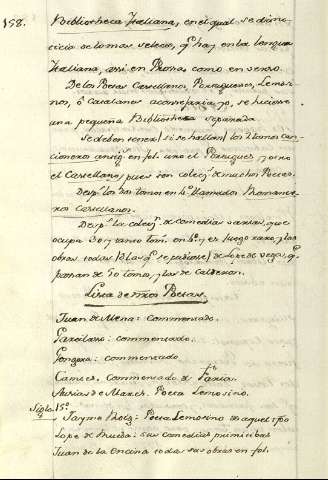 158.
Bibliotheca Italiana, en el qual se da no-
ticia de lo mas selecto, q.e hay en la lengua
Italiana, assi en Prosa, como en verso.
De los Poetas Castellanos, Portugueses, Lemosi-
nos, ô Catalanes aconsejaria yo, se hiciesse
una pequeña Bibliotheca separada
Se deben tener (si se hallan) los 2 tomos can-
cioneros antig.s en fol. uno el Portugues, y otro
el Castellano, pues son colecc.n de muchos Poetas.
Desp.s los tomos en 4.º llamados Romance-
ros Castellanos.
Desp.s la colecc.n de comedias varias, que
ocupa 30 y tantos tom.s en 4.º y es juego raro, y las
obras todas (si las q.e se pudiere) de Lope de Vega, q.e
passan de 50 tomos, y las de Calderon.
Lista de n.ros Poetas.
Juan de Mena: commentado.
Garcilasso: commentado.
Gongora: commentado
Camoes. Commentado de Faria.
Ausias de March. Poeta Lemosino.
Siglo 15.º
Jayme Roig: Poeta Lemosino de aquel tpo
Lope de Rueda: sus comedias primitivas
Juan de la Encina todas sus obras en fol.